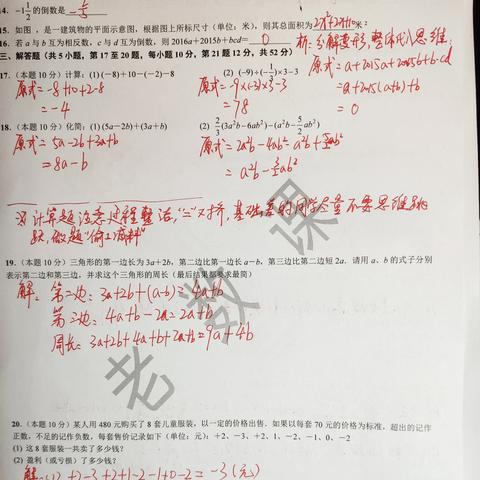 14. -1½的倒数是 -⅔
15. 如图，是一建筑物的平面示意图，根据图上所标尺寸（单位：米），则其总面积为 米²
16. 若a与b互为相反数，c与d互为倒数，则2016a+2015b+bcd= 0
析：分解变形，整体代入思维
三、解答题（共5小题，第17至20题，每小题10分，第21题12分，共52分）
原式=a+2015a+2015b+b·cd
17.（本题10分）计算：(1) (-8)+10-(-2)-8 (2) (-9)÷(-⅓)×3-3
原式=-8+10+2-8 原式=-9×(-3)×3-3 =a+2015(a+b)+b
=-4 =78 =0
18.（本题10分）化简：(1) (5a-2b)+(3a+b) (2) ⅔(3a²b-6ab²)-(a²b-5/2ab²)
原式=5a-2b+3a+b 原式=2a²b-4ab²-a²b+5/2ab²
=8a-b =a²b-3/2ab²
计算题注意过程整洁，"="对齐，基础差的同学尽量不要思维跳
跃，做题"偷工减料"
19.（本题10分）三角形的第一边长为3a+2b，第二边比第一边长a-b，第三边比第二边短2a．请用a、b的式子分别
表示第二边和第三边，并求这个三角形的周长（最后结果都要求最简）
解：第二边：3a+2b+(a-b)=4a+b
第三边：4a+b-2a=2a+b
周长：3a+2b+4a+b+2a+b=9a+4b
老数课
20.（本题10分）某人用480元购买了8套儿童服装，以一定的价格出售．如果以每套70元的价格为标准，超出的记作
正数，不足的记作负数，每套售价记录如下（单位：元）：+2、-3、+2、1、-2、-1、0、-2
(1) 这8套服装一共卖了多少钱？
(2) 盈利（或亏损）了多少钱？
解：(1) +2-3+2+1-2-1+0-2=-3(元)